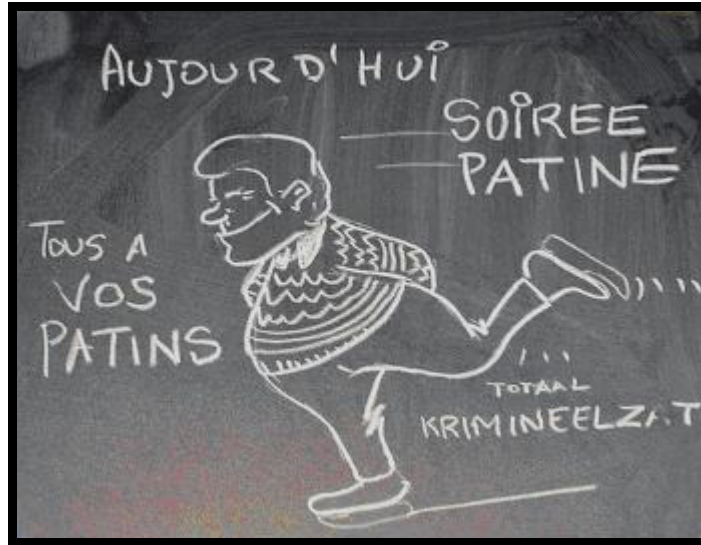 AUJOURD'HUI
SOIREE
PATINE
TOUS A
VOS
PATINS
TOTAAL
KRIMINEELZAT